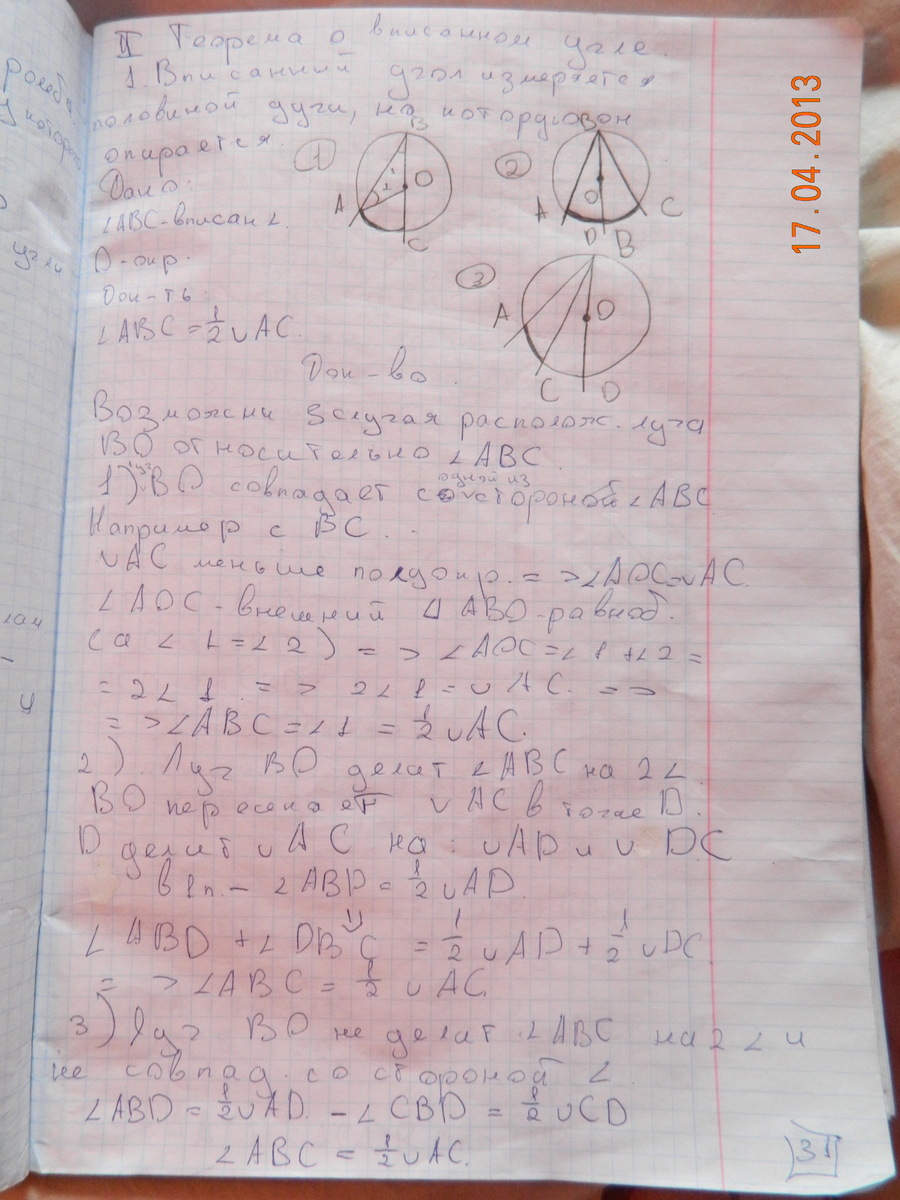 II Теорема о вписанном угле.
1. Вписанный угол измеряется
половиной дуги, на которую он
опирается.
Дано:
∠ABC - вписан ∠.
O - окр.
Док-ть:
∠ABC = 1/2 ∪AC.
1
B
1
2
O
A
C
2
B
O
A
C
D
3
B
A
O
C
D
Док-во.
Возможны 3 случая располож. луча
BO относительно ∠ABC.
1) луч BO совпадает с одной из стороной ∠ABC
Например с BC.
∪AC меньше полуокр. => ∠AOC = ∪AC.
∠AOC - внешний △ABO - равноб.
(а ∠1 = ∠2) => ∠AOC = ∠1 + ∠2 =
= 2∠1. => 2∠1 = ∪AC. =>
=> ∠ABC = ∠1 = 1/2 ∪AC.
2). Луч BO делит ∠ABC на 2∠.
BO пересекает ∪AC в точке D.
D делит ∪AC на: ∪AD и ∪DC
в 1п. - ∠ABD = 1/2 ∪AD.
∠ABD + ∠DBC = 1/2 ∪AD + 1/2 ∪DC
=> ∠ABC = 1/2 ∪AC
3) Луч BO не делит ∠ABC на 2∠ и
не совпад. со стороной ∠
∠ABD = 1/2 ∪AD. - ∠CBD = 1/2 ∪CD
∠ABC = 1/2 ∪AC.
31
17.04.2013